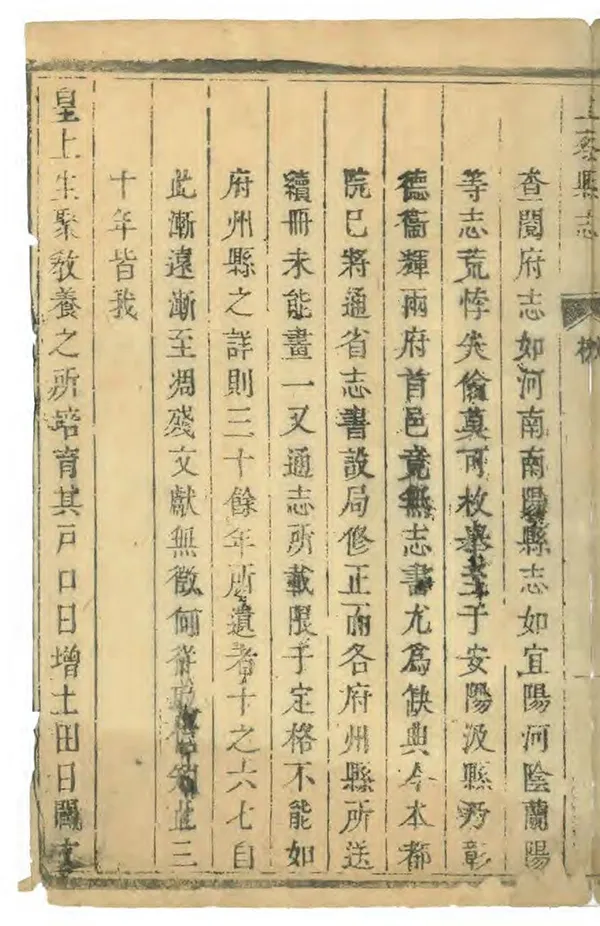 上蔡縣志
查閱府志如河南南陽縣志如宜陽河陰蘭陽
等志荒悖失倫莫可枚舉至于安陽汲縣乃彰
德衞輝兩府首邑竟無志書尤爲缺典今本都
院已將通省志書設局修正而各府州縣所送
續冊未能畫一又通志所載限于定格不能如
府州縣之詳則三十餘年所遺者十之六七自
此漸遠漸至凋殘文獻無徵何從此三
十年皆我
皇上生聚敎養之所培育其戸口日增土田日闢文